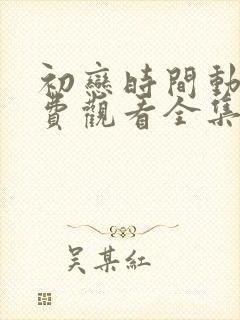 初戀時間動
費觀看全集
吳某紅